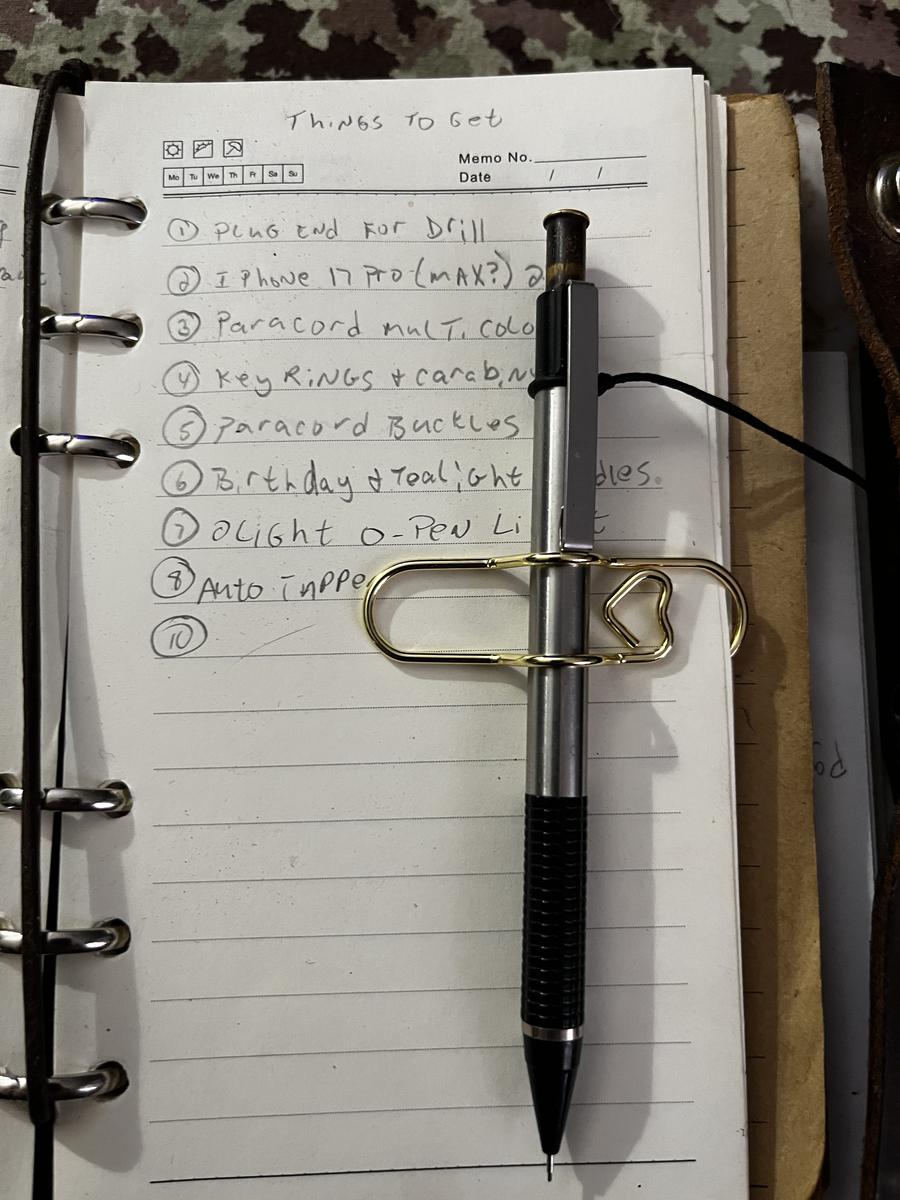 Things To Get
Memo No.
Mo Tu We Th Fr Sa Su
Date / /
① Plug End For Drill
② I Phone 17 Pro (mAX?)
③ Paracord mulTi colo
④ Key RiNGS & carabiN
⑤ Paracord Buckles
⑥ Birthday & Tealight dles.
⑦ OLiGht O-PeN Li t
⑧ Auto
⑩